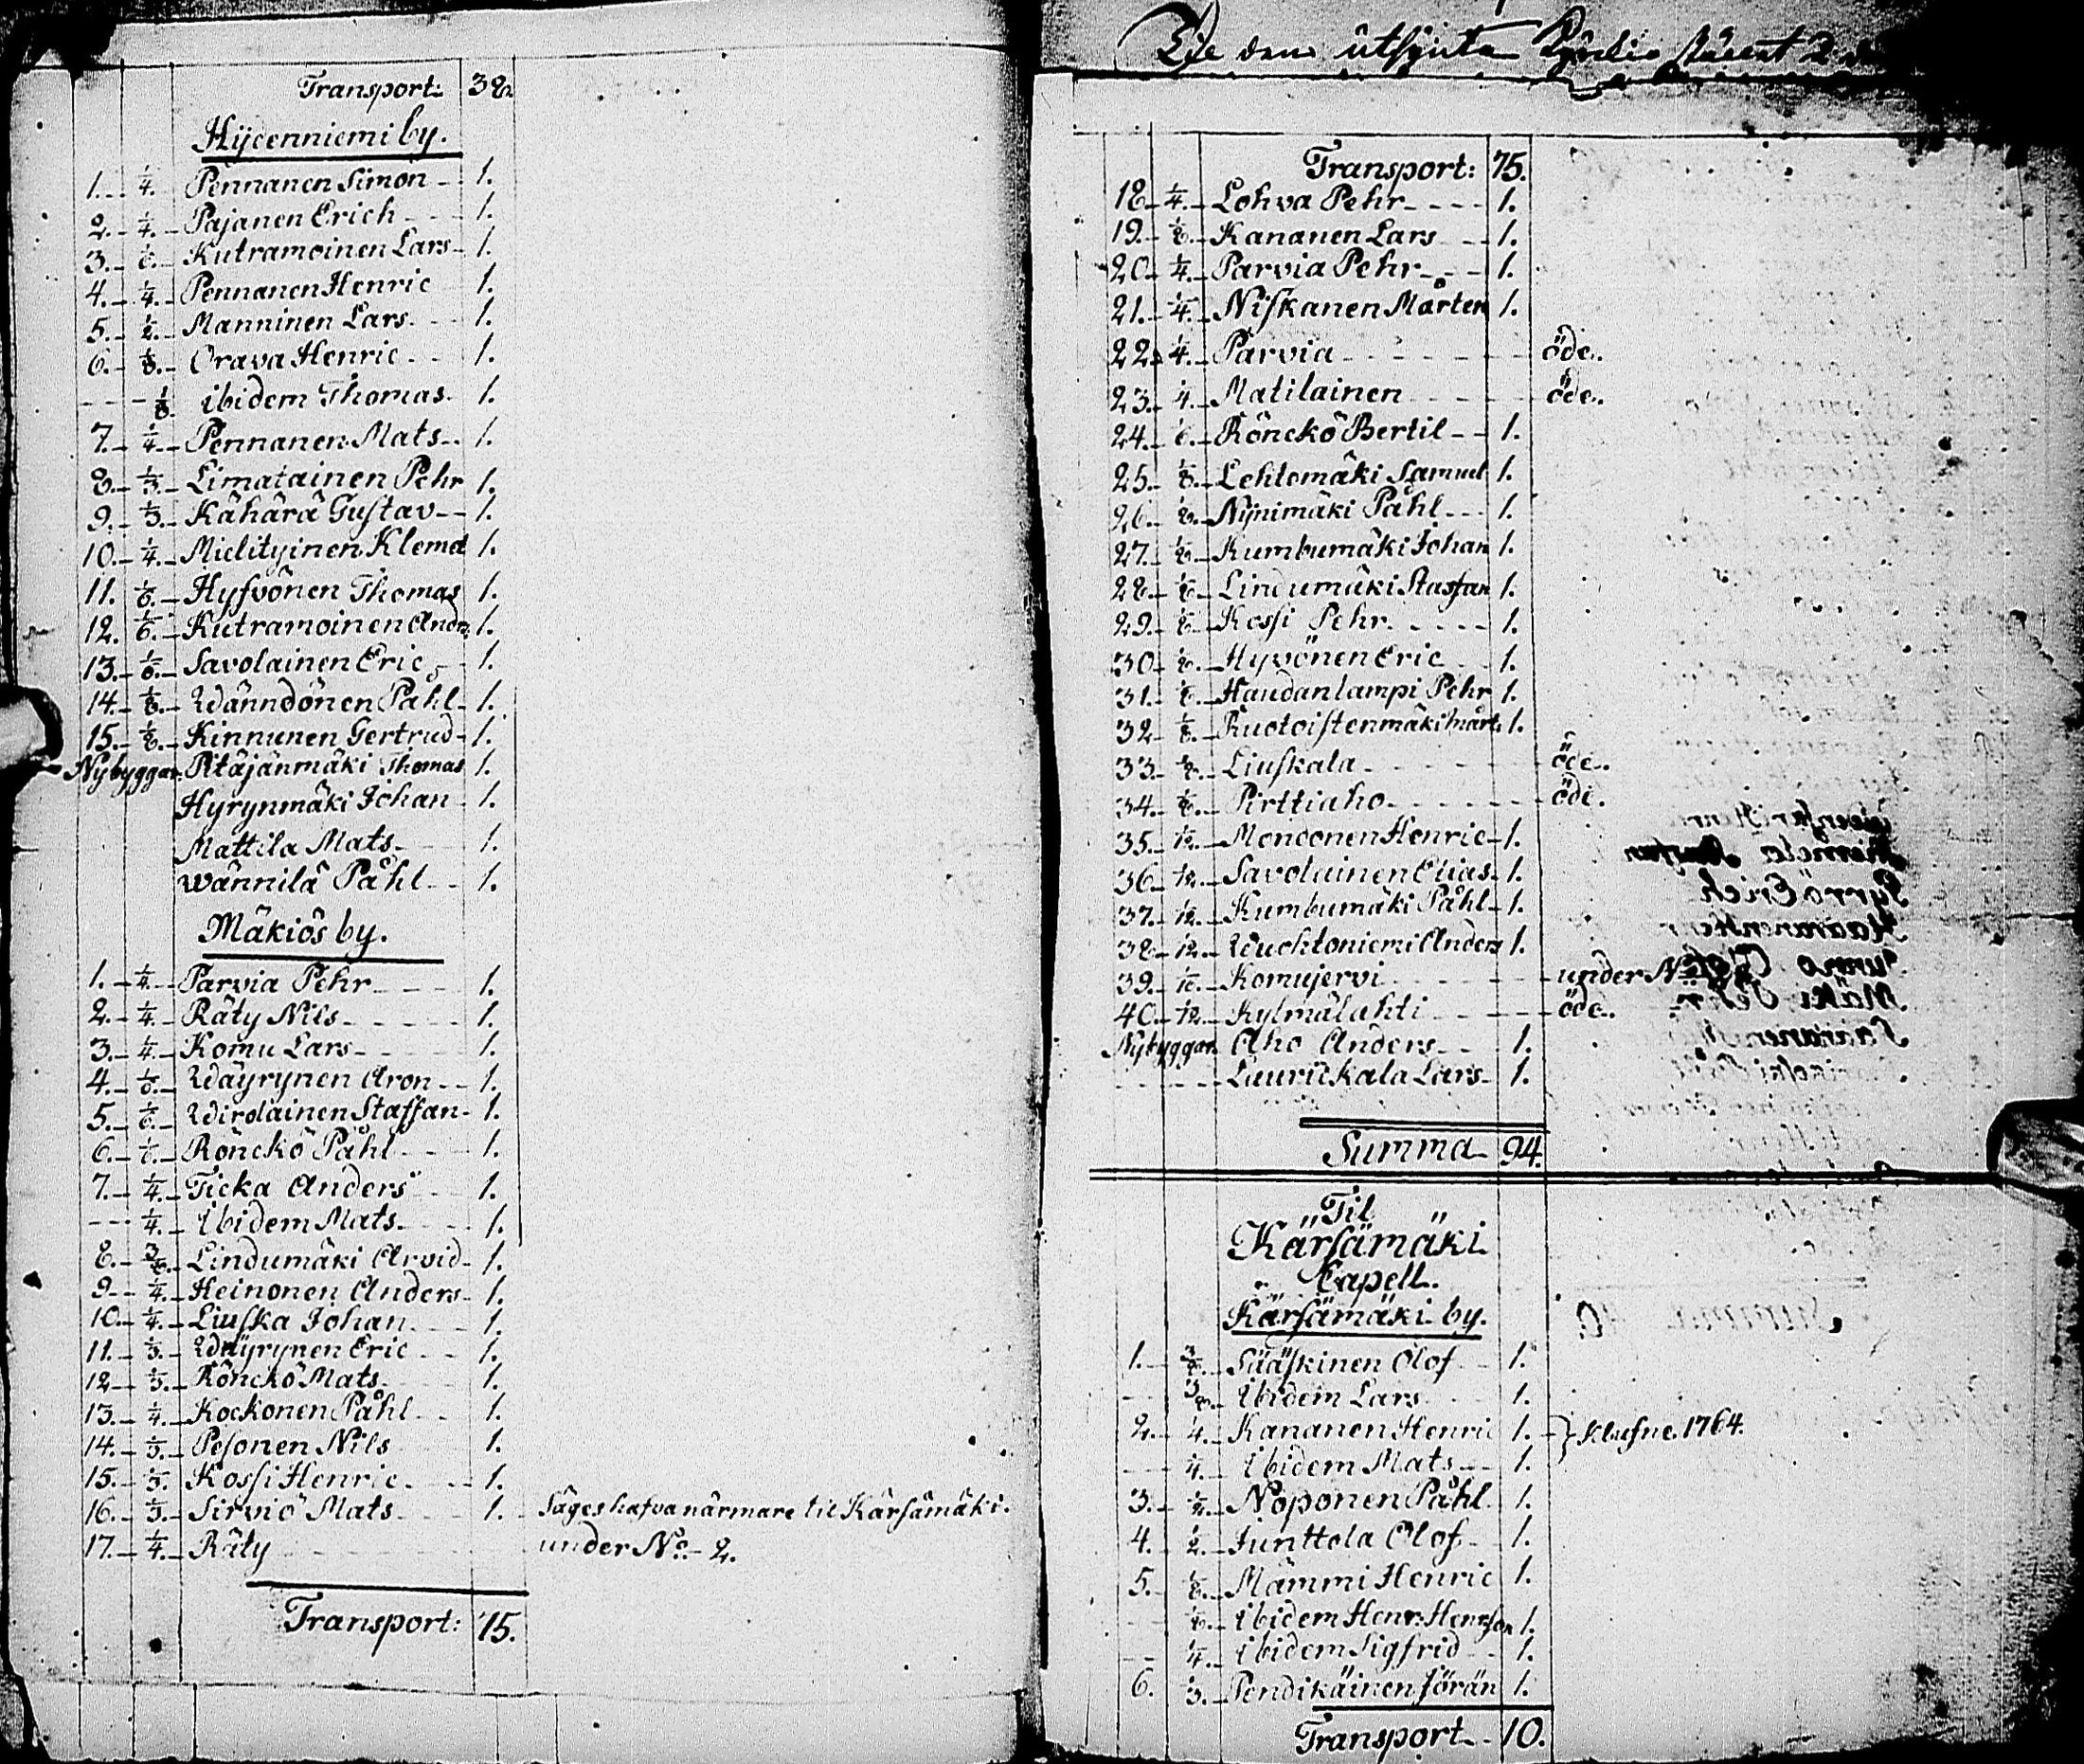 Transport: 38
Hyvenniemi by.
1. 1/4. Pennanen Simon 1.
2. 1/4. Pajanen Erich 1.
3. 1/6. Kutramoinen Lars 1.
4. 1/4. Pennanen Henric 1.
5. 1/2. Manninen Lars 1.
6. 1/8. Orava Henric 1.
1/8. ibidem Thomas 1.
7. 1/4. Pennanen Mats 1.
8. 1/3. Limatainen Pehr 1.
9. 1/3. Kähärä Gustav 1.
10. 1/4. Mielityinen Klemet 1.
11. 1/6. Hyfvönen Thomas 1.
12. 1/6. Kutramoinen Andrs 1.
13. 1/6. Savolainen Eric 1.
14. 1/8. Wänndönen Påhl 1.
15. 1/8. Kinnunen Gertrud 1.
Nybyggare Pitäjänmäki Thomas 1.
Hyrynmäki Johan 1.
Mattila Mats 1.
Wännilä Påhl 1.
Mäkiös by.
1. 1/4. Parvia Pehr 1.
2. 1/4. Räty Nils 1.
3. 1/4. Komu Lars 1.
4. 1/6. Wäyrynen Aron 1.
5. 1/6. Wirolainen Staffan 1.
6. 1/6. Rönckö Påhl 1.
7. 1/4. Ticka Anders 1.
1/4. ibidem Mats 1.
8. 3/8. Lindumäki Arvid 1.
9. 1/4. Heinonen Anders 1.
10. 1/4. Liuska Johan 1.
11. 1/3. Wäyrynen Eric 1.
12. 1/3. Rönckö Mats 1.
13. 1/4. Kockonen Påhl 1.
14. 1/3. Pesonen Nils 1.
15. 1/3. Kossi Henric 1.
16. 1/3. Sirviö Mats 1. Säges hafva närmare til Kärsämäki.
17. 1/4. Räty under No. 2.
Transport: 75.
utsynta
Transport: 75.
18. 1/4. Lohva Pehr 1.
19. 1/8. Kananen Lars 1.
20. 1/4. Parvia Pehr 1.
21. 1/4. Niskanen Mårten 1.
22. 1/4. Parvia öde.
23. 1/4. Matilainen öde.
24. 1/6. Rönckö Bertil 1.
25. 1/8. Lehtomäki Samuel 1.
26. 1/8. Nynimäki Påhl 1.
27. 1/8. Kumbumäki Johan 1.
28. 1/8. Lindumäki Staffan 1.
29. 1/8. Kossi Pehr 1.
30. 1/8. Hyvönen Eric 1.
31. 1/8. Haudanlampi Pehr 1.
32. 1/8. Ruotoistenmäki Mårt. 1.
33. 1/8. Liuskala öde.
34. 1/8. Pirttiaho öde.
35. 1/12. Mondonen Henric 1.
36. 1/12. Savolainen Elias 1.
37. 1/12. Kumbumäki Påhl 1.
38. 1/12. Wuohtoniemi Anders 1.
39. 1/12. Komujervi under No.
40. 1/12. Kylmälahti öde.
Nybyggare Aho Anders 1.
Lauriikala Lars 1.
Summa 94.
Til
Kärsämäki
Capell.
Kärsämäki by.
1. 3/8. Sääskinen Olof 1.
3/8. ibidem Lars 1.
2. 1/4. Kananen Henric 1. } Klufne 1764.
1/4. ibidem Mats 1.
3. 1/2. Noponen Påhl 1.
4. 1/2. Junttola Olof 1.
5. 1/8. Mämmi Henric 1.
1/8. ibidem Henr: Henrson 1.
1/4. ibidem Sigfrid 1.
6. 1/3. Pendikäinen Jöran 1.
Transport 10.